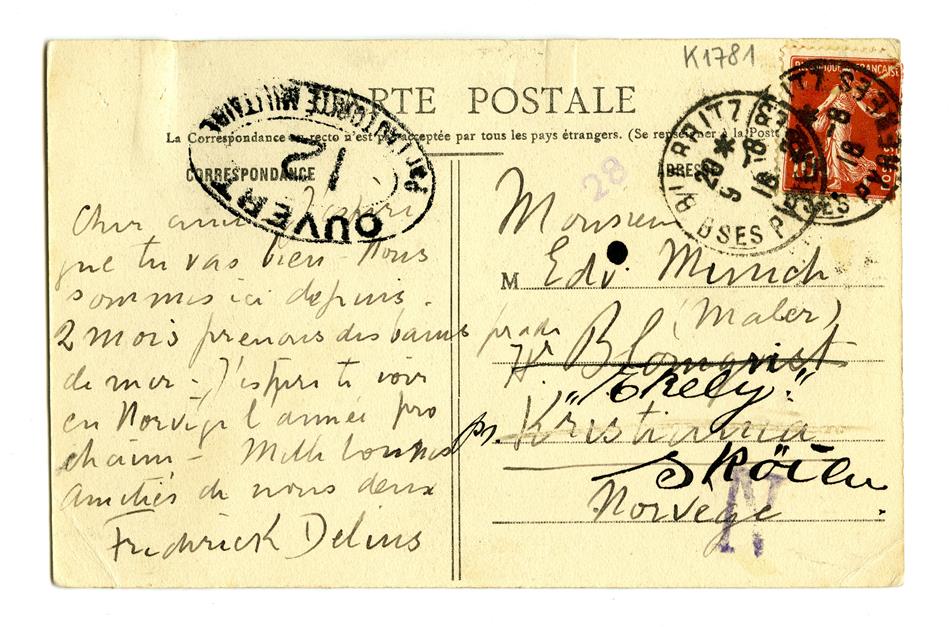 K1781
CARTE POSTALE
La Correspondance au recto n'est pas acceptée par tous les pays étrangers. (Se renseigner à la Poste
CORRESPONDANCE
ADRESSE
OUVERT
PAR L'AUTORITÉ MILITAIRE
12
28
BIARRITZ
20 *
9 -8
18
BSES PYRÉNÉES
RÉPUBLIQUE FRANÇAISE
10
POSTES
Cher ami J'espère
que tu vas bien - Nous
sommes ici depuis
2 mois prenons des bains
de mer - J'espère te voir
en Norvège l'année pro
chaine - Mille bonnes
amitiés de nous deux
Frederick Delius
Monsieur
M Edv. Munch
(Maler)
Hr Blomqvist
"Ekely".
pr. Kristiania
Sköien
Norvège
N